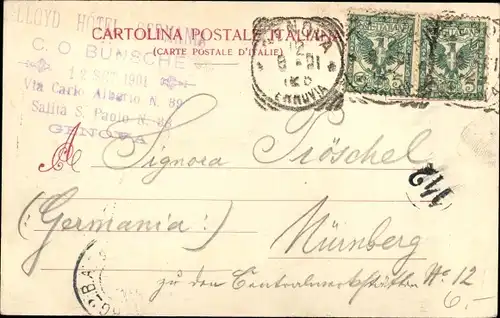 LLOYD HÔTEL GERMANIA
C. O. BÜNSCHE
12 SET 1901
Via Carlo Alberto N. 39
Salita S. Paolo N. 38
GENOVA
CARTOLINA POSTALE ITALIANA
(CARTE POSTALE D'ITALIE)
GENOVA
12
9-01
FERROVIA
A Signora Tröschel
(Germania:) Nürnberg
zu den Centralwerkstätten No. 12
6.-
142